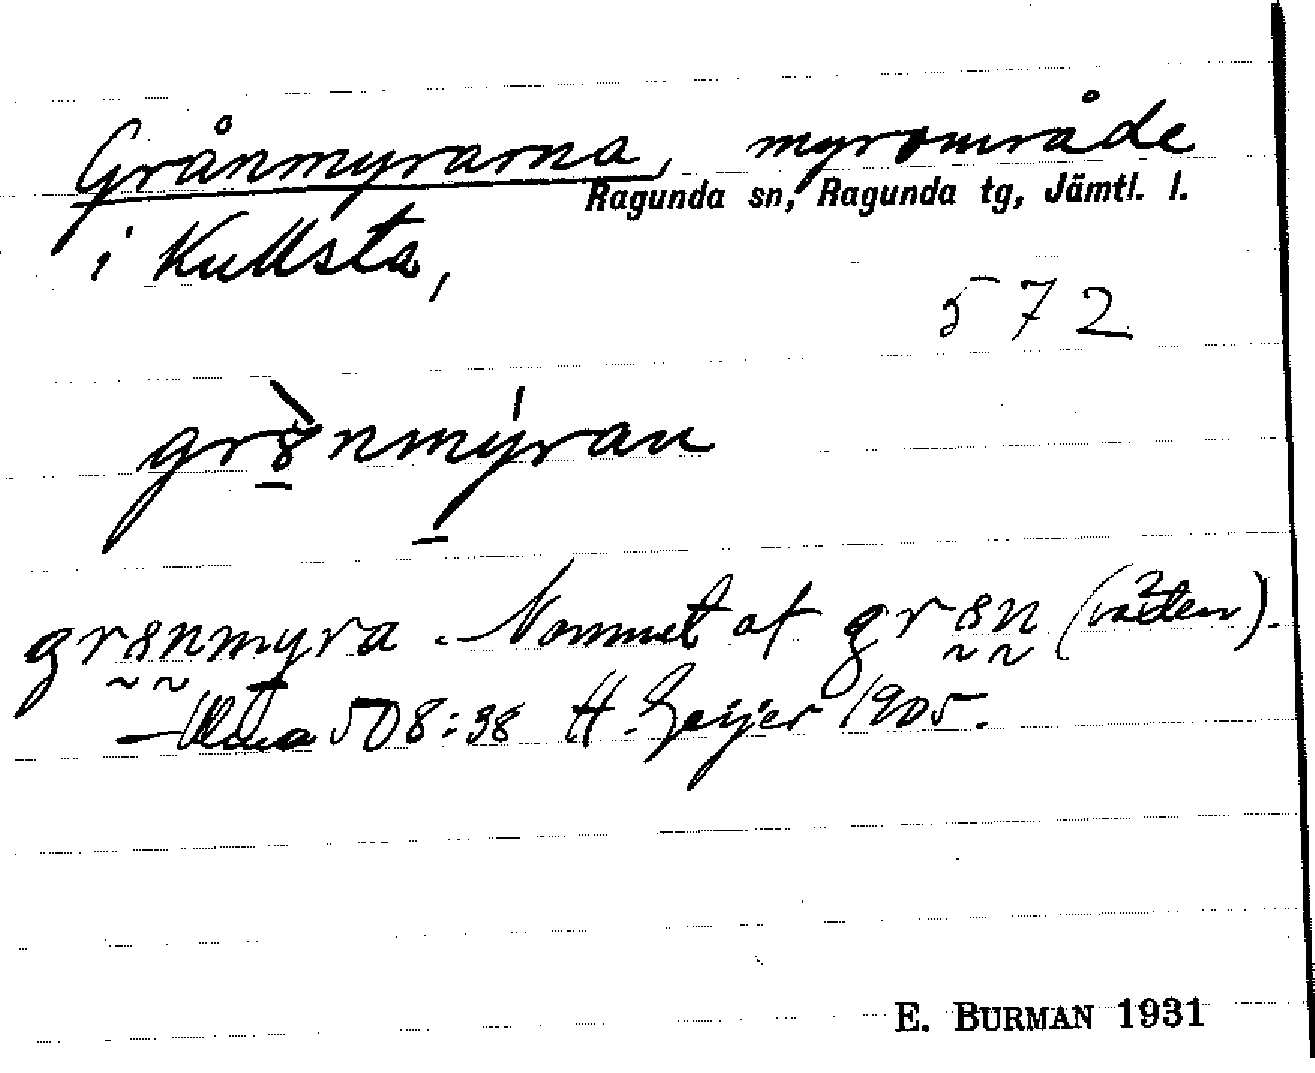 Grånmyrarna, myrområde
Ragunda sn, Ragunda tg, Jämtl. l.
i Kullsta,
572
gr8nmýran
gr8nmyra. Namnet af gr8n
508:38 H. Geijer 1905.
E. BURMAN 1931